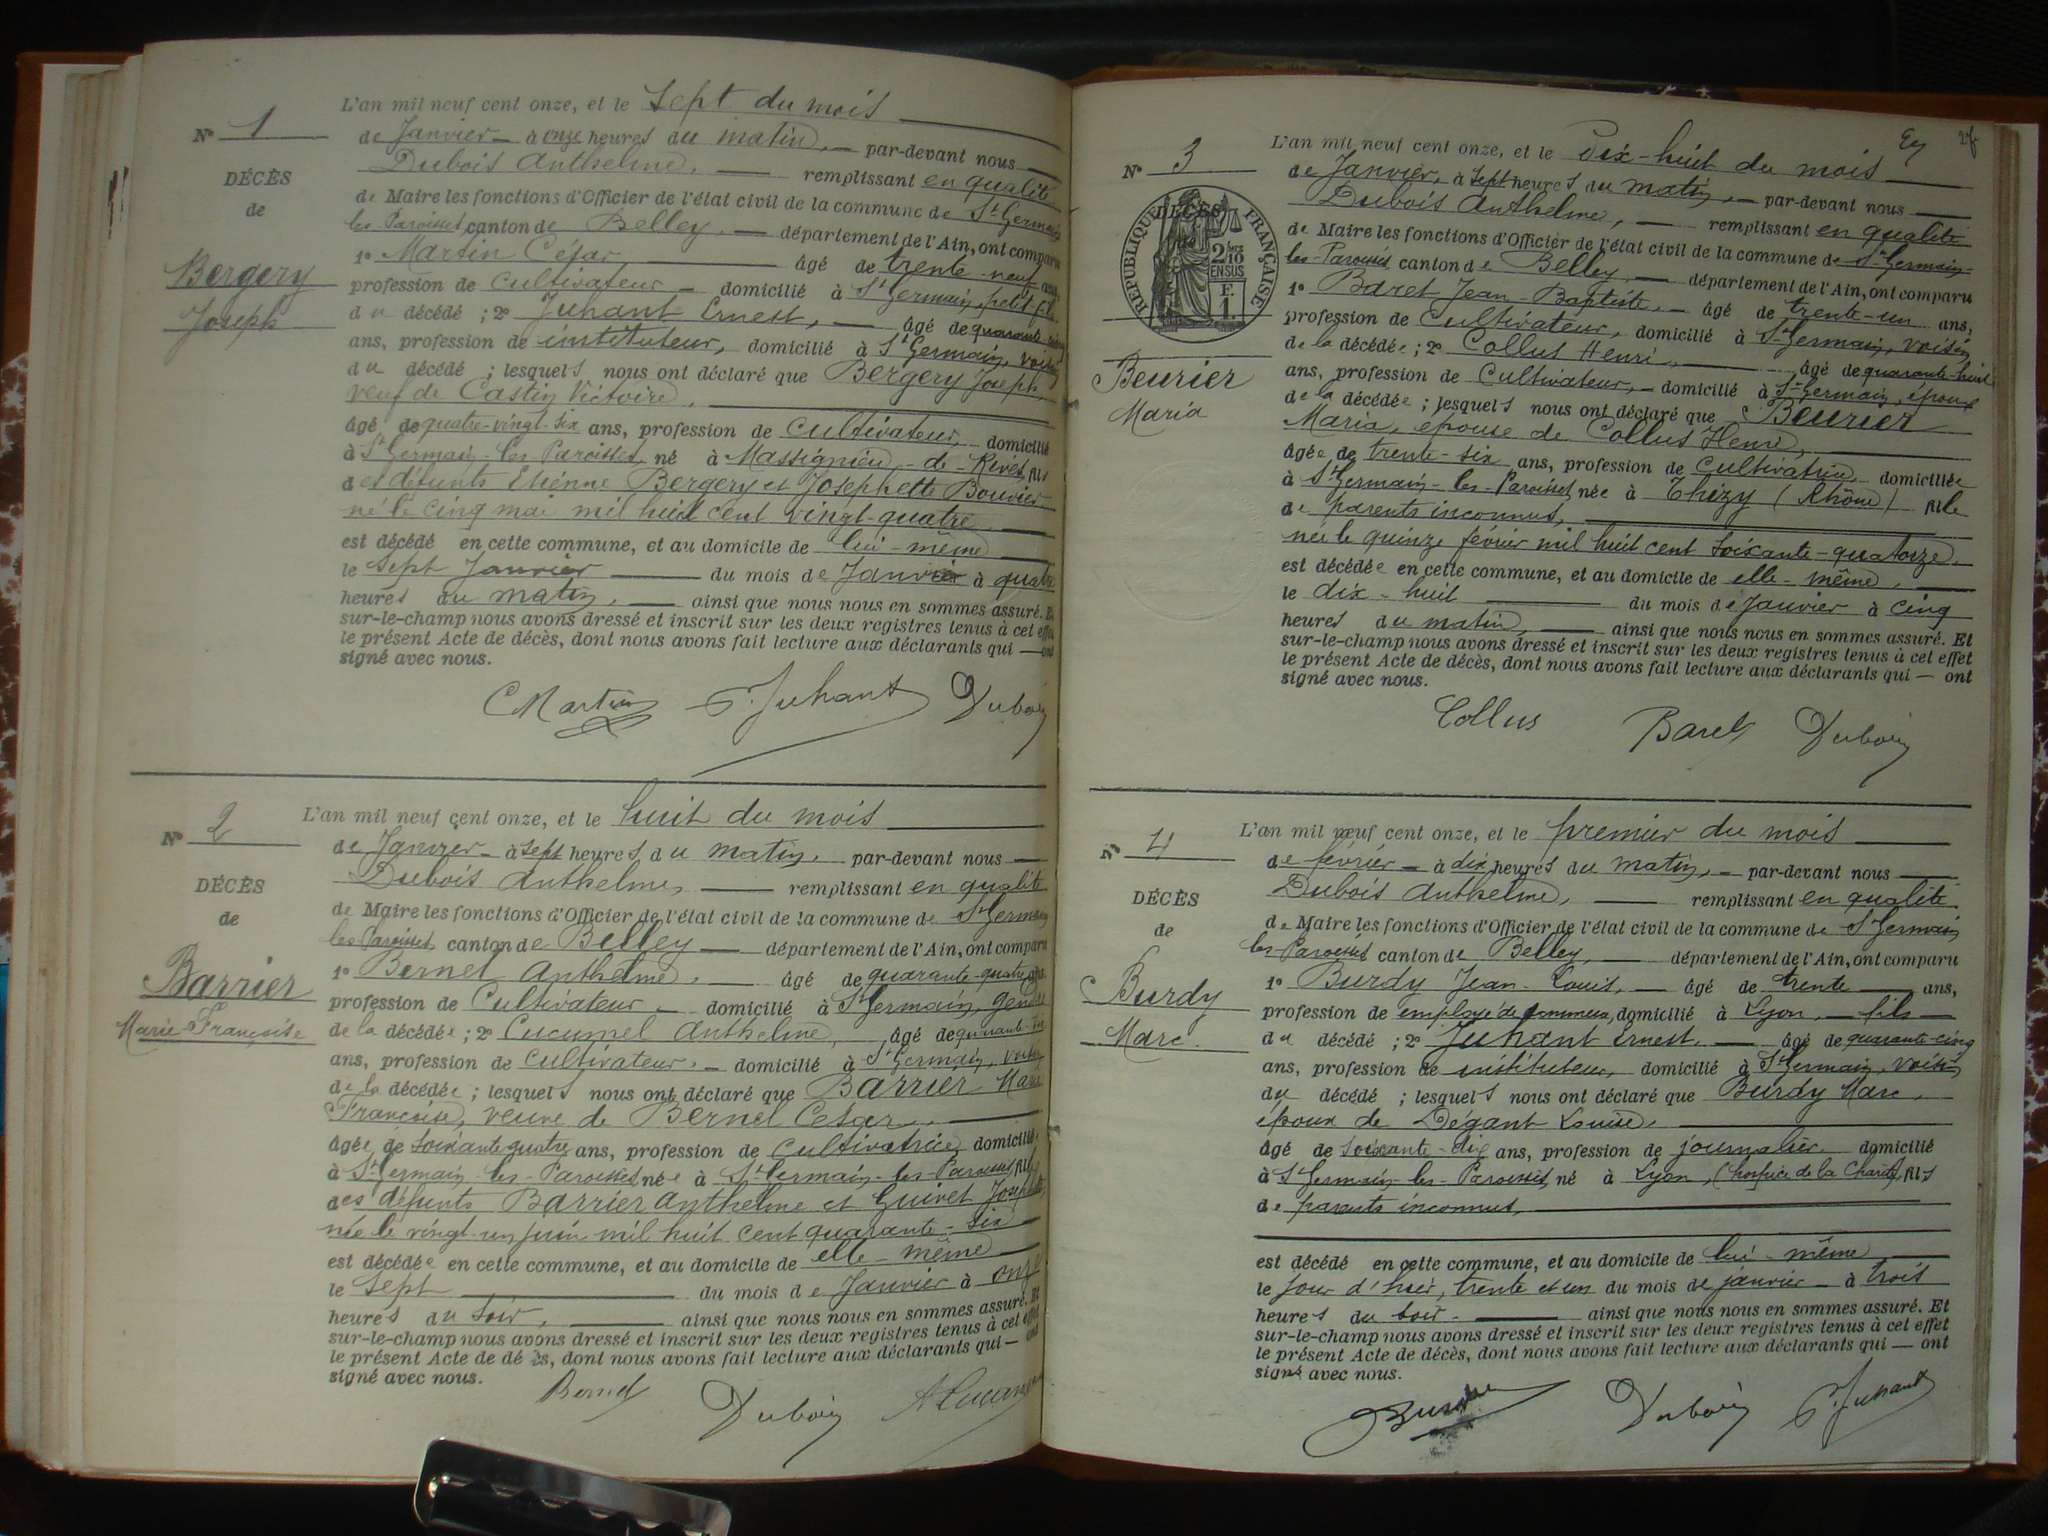 L'an mil neuf cent onze, et le sept du mois
N° 1
de Janvier à onze heures du matin, par-devant nous
Dubois Anthelme, remplissant en qualité
DÉCÈS
de Maire les fonctions d'Officier de l'état civil de la commune de St Germain
de
les Paroisses canton de Belley, département de l'Ain, ont comparu
1° Martin César âgé de trente-neuf ans,
Bergery
profession de Cultivateur domicilié à St Germain, petit-fils
Joseph
du décédé ; 2° Juhant Ernest, âgé de quarante-cinq
ans, profession de instituteur, domicilié à St Germain, voisin
du décédé ; lesquels nous ont déclaré que Bergery Joseph,
veuf de Castin Victoire,
âgé de quatre-vingt-six ans, profession de Cultivateur domicilié
à St Germain-les-Paroisses, né à Massignieu-de-Rives, fils
des défunts Etienne Bergery et Josephette Bouvier
né le cinq mai mil huit cent vingt-quatre
est décédé en cette commune, et au domicile de lui-même
le sept Janvier du mois de Janvier à quatre
heures du matin, ainsi que nous nous en sommes assuré. Et
sur-le-champ nous avons dressé et inscrit sur les deux registres tenus à cet effet
le présent Acte de décès, dont nous avons fait lecture aux déclarants qui — ont
signé avec nous.
C Martin Juhant Dubois
L'an mil neuf cent onze, et le huit du mois
N° 2
de Janvier à sept heures du matin, par-devant nous
Dubois Anthelme, remplissant en qualité
DÉCÈS
de Maire les fonctions d'Officier de l'état civil de la commune de St Germain
de
les Paroisses canton de Belley département de l'Ain, ont comparu
1° Bernel Anthelme, âgé de quarante-quatre ans,
Barrier
profession de Cultivateur domicilié à St Germain, gendre
Marie-Françoise
de la décédée ; 2° Cucumel Anthelme, âgé de quarante-six
ans, profession de Cultivateur, domicilié à St Germain, voisin
de la décédée ; lesquels nous ont déclaré que Barrier Marie
Françoise, veuve de Bernel César,
âgée de soixante quatre ans, profession de Cultivatrice domiciliée
à St Germain-les-Paroisses née à St Germain-les-Paroisses, fille
des défunts Barrier Anthelme et Guivet Josephte
née le vingt-un juin mil huit cent quarante-six
est décédée en cette commune, et au domicile de elle-même
le sept du mois de Janvier à onze
heures du soir, ainsi que nous nous en sommes assuré. Et
sur-le-champ nous avons dressé et inscrit sur les deux registres tenus à cet effet
le présent Acte de décès, dont nous avons fait lecture aux déclarants qui — ont
signé avec nous.
Bernel Dubois
L'an mil neuf cent onze, et le Dix-huit du mois
N° 3
de Janvier, à sept heures du matin, par-devant nous
Dubois Anthelme, remplissant en qualité
DÉCÈS
RÉPUBLIQUE FRANÇAISE
2/10 EN SUS
F. 1.
de Maire les fonctions d'Officier de l'état civil de la commune de St Germain-
les-Paroisses canton de Belley département de l'Ain, ont comparu
1° Baret Jean-Baptiste, âgé de trente-un ans,
profession de Cultivateur, domicilié à St Germain, voisin
de la décédée ; 2° Collus Henri, âgé de quarante-huit
Beurier
ans, profession de Cultivateur, domicilié à St Germain, époux
Maria
de la décédée ; lesquels nous ont déclaré que Beurier
Maria, épouse de Collus Henri,
âgée de trente-six ans, profession de Cultivatrice, domiciliée
à St Germain-les-Paroisses, née à Thizy (Rhône) fille
de parents inconnus,
née le quinze février mil huit cent soixante-quatorze,
est décédée en cette commune, et au domicile de elle-même,
le dix-huit du mois de Janvier à cinq
heures du matin, ainsi que nous nous en sommes assuré. Et
sur-le-champ nous avons dressé et inscrit sur les deux registres tenus à cet effet
le présent Acte de décès, dont nous avons fait lecture aux déclarants qui — ont
signé avec nous.
Collus Baret Dubois
L'an mil neuf cent onze, et le premier du mois
N° 4
de février à dix heures du matin, par-devant nous
Dubois Anthelme, remplissant en qualité
DÉCÈS
de Maire les fonctions d'Officier de l'état civil de la commune de St Germain
de
les-Paroisses canton de Belley, département de l'Ain, ont comparu
1° Burdy Jean-Louis, âgé de trente ans,
Burdy
profession de employé de commerce, domicilié à Lyon, fils
Marc
du décédé ; 2° Juhant Ernest, âgé de quarante-cinq
ans, profession de instituteur, domicilié à St Germain, voisin
du décédé ; lesquels nous ont déclaré que Burdy Marc,
époux de Dégant Louise,
âgé de soixante-dix ans, profession de journalier domicilié
à St Germain-les-Paroisses, né à Lyon, (hospice de la Charité) fils
de parents inconnus,
est décédé en cette commune, et au domicile de lui-même
le jour d'hier, trente et un du mois de janvier à trois
heures du soir. ainsi que nous nous en sommes assuré. Et
sur-le-champ nous avons dressé et inscrit sur les deux registres tenus à cet effet
le présent Acte de décès, dont nous avons fait lecture aux déclarants qui — ont
signé avec nous.
Dubois Juhant